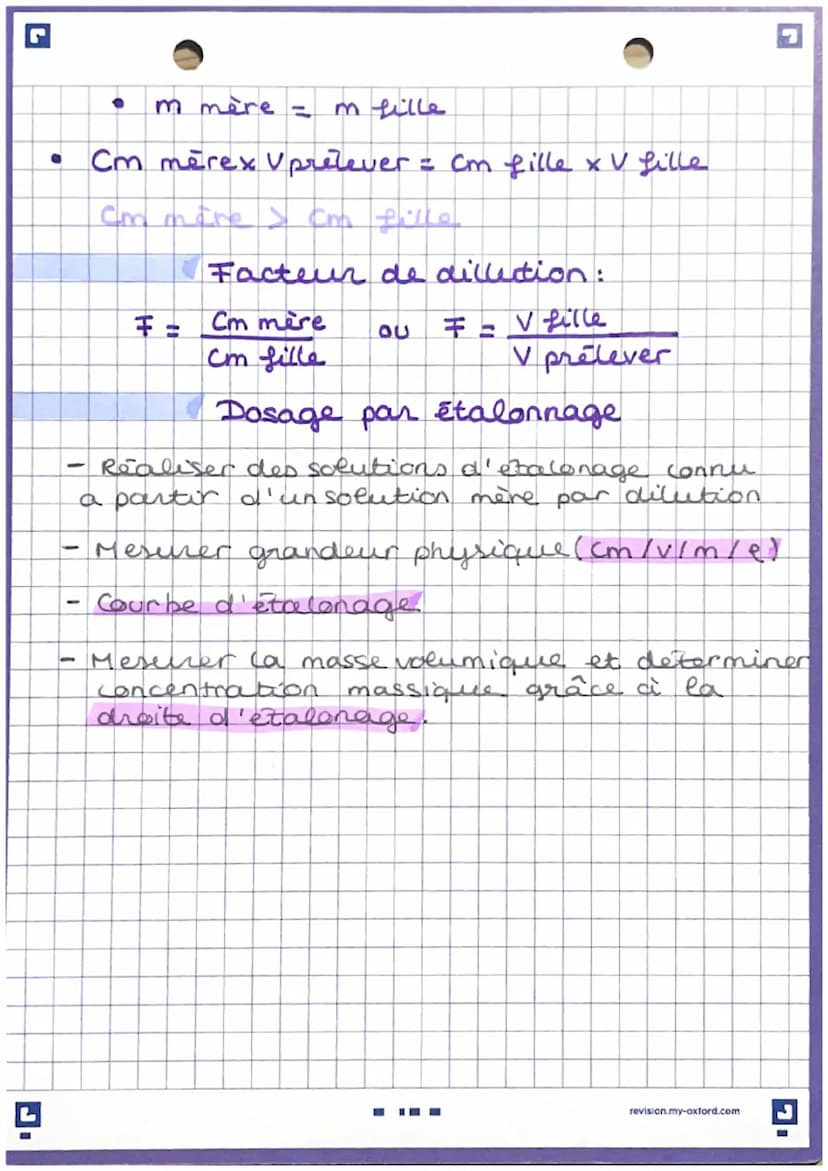 • m mère = m fille
• Cm mère x V prélever = Cm fille x V fille
Cm mère > Cm fille
Facteur de dillution :
F = Cm mère / Cm fille ou F = V fille / V prélever
Dosage par étalonnage
- Réaliser des solutions d'étalonage connu
a partir d'un solution mère par dilution
- Mesurer grandeur physique (cm/v/m/e)
- Courbe d'étalonage.
- Mesurer la masse volumique et déterminer
concentration massique grâce à la
droite d'étalonage.
revision.my-oxford.com